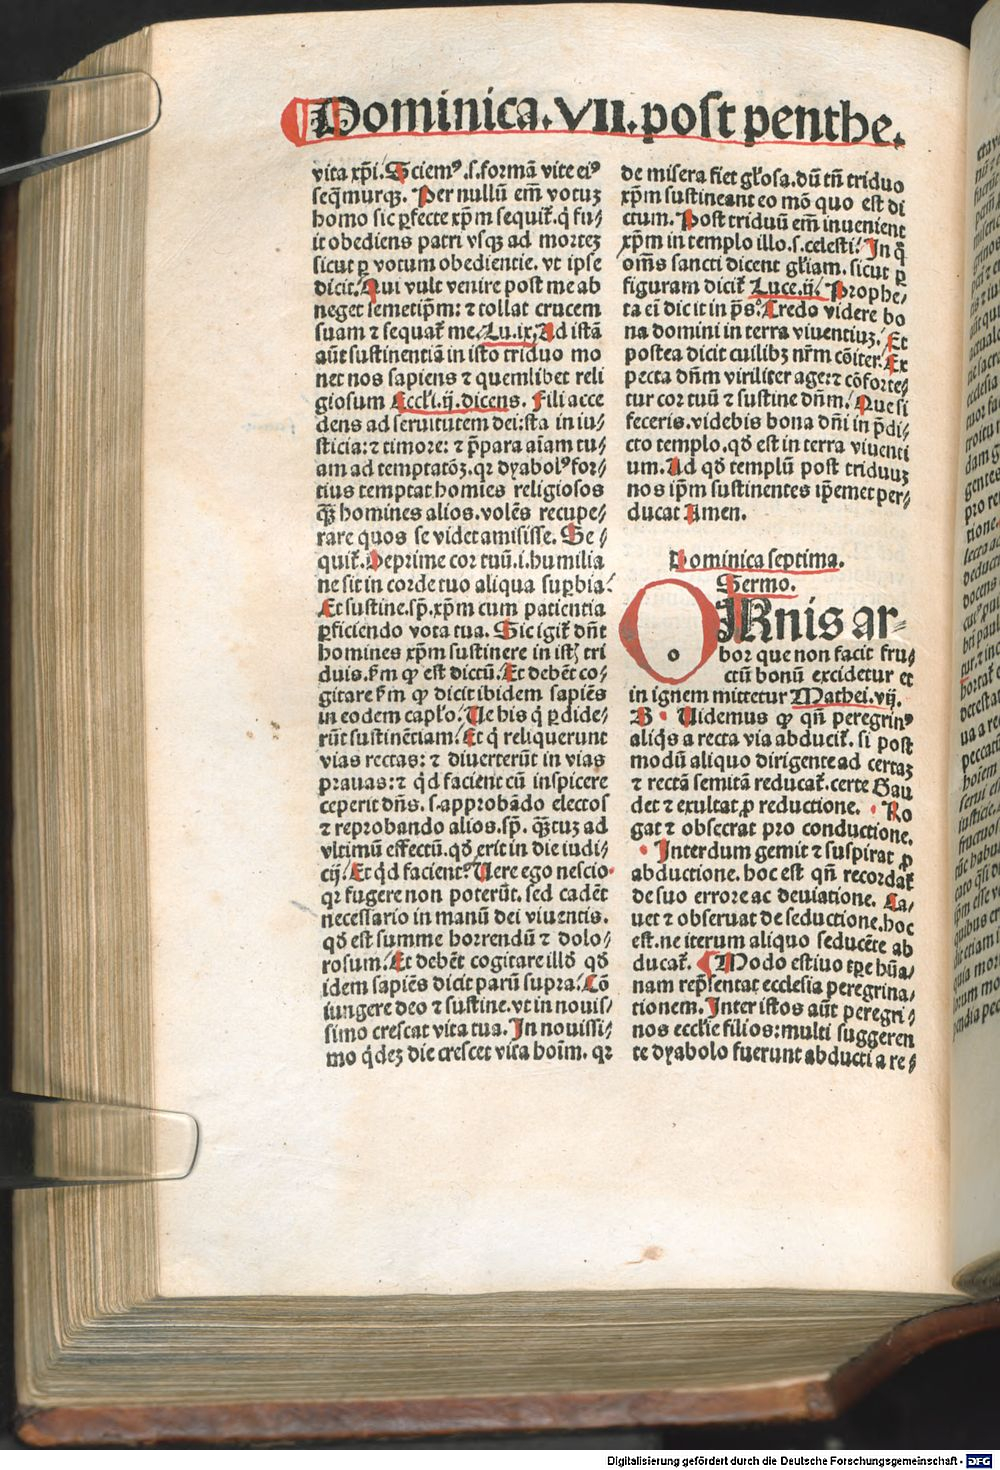 Dominica.VII.post penthe.
vita xp̄i. Sciemꝰ.s.formā vite eiꝰ
seq̄murqꝫ. Per nullū em̄ votuꝫ
homo sic ꝑfecte xp̄m sequit᷑.q̇ fu⸗
it obediens patri vsqꝫ ad morteꝫ
sicut ꝑ votum obedientie. vt ipse
dicit. Qui vult venire post me ab
neget semetip̄m: ⁊ tollat crucem
suam ⁊ sequat᷑ me. Lu.ix. Ad istā
aūt sustinentiā in isto triduo mo
net nos sapiens ⁊ quemlibet reli
giosum Eccl̓i.ij.dicens. Fili acce
dens ad seruitutem dei: sta in iu⸗
sticia: ⁊ timore: ⁊ p̄para aīam tu⸗
am ad temptatōꝫ. qꝛ dyabolꝰ for⸗
tius temptat homīes religiosos
qꝫ̄ homines alios. volēs recupe⸗
rare quos se videt amisisse. Se⸗
quit᷑. Deprime cor tuū.i.humilia
ne sit in corde tuo aliqua suꝑbia.
Et sustine.sp̄.xp̄m cum patientia
ꝑficiendo vota tua. Sic igit᷑ dn̄t
homines xp̄m sustinere in istꝭ tri
duis. ẜm ꝙ est dictū. Et debēt co⸗
gitare ẜm ꝙ dicit ibidem sapiēs
in eodem capl̓o. Ue his q̇ ꝑdide⸗
rūt sustinētiam. Et q̇ reliquerunt
vias rectas: ⁊ diuerterūt in vias
prauas: ⁊ q̇d facient cū inspicere
ceperit dn̄s. s.approbādo electos
⁊ reprobando alios.sp̄. qꝫ̄tuꝫ ad
vltimū effectū. qd̓ erit in die iudi⸗
cij. Et q̇d facient? Uere ego nescio
qꝛ fugere non poterūt. sed cadēt
necessario in manū dei viuentis.
qd̓ est summe horrendū ⁊ dolo⸗
rosum. Et debēt cogitare illd̓ qd̓
idem sapiēs dicit parū supra. Cō
iungere deo ⁊ sustine. vt in nouis⸗
simo crescat vita tua. In nouissi⸗
mo q̇deꝫ die crescet vita hoīm. qꝛ
de misera fiet gl̓osa. dū tn̄ triduo
xp̄m sustineant eo mō quo est di
ctum. Post triduū em̄ inuenient
xp̄m in templo illo.s.celesti. In q̊
om̄s sancti dicent gl̓iam. sicut ꝑ
figuram dicit᷑ Luce.ij. Prophe⸗
ta eī dicit in ps̄. Credo videre bo
na domini in terra viuentiuꝫ. Et
postea dicit cuilibꝫ nr̄m cōiter. Ex
pecta dn̄m viriliter age: ⁊ cōforte⸗
tur cor tuū ⁊ sustine dn̄m. Que si
feceris. videbis bona dn̄i in p̄di⸗
cto templo. qd̓ est in terra viuenti
um. Ad qd̓ templū post triduuꝫ
nos ip̄m sustinentes ip̄emet per⸗
ducat Amen.
Dominica septima.
Sermo.
OMnis ar⸗
bor que non facit fru⸗
ctū bonū excidetur et
in ignem mittetur Mathei.vij.
Uidemus ꝙ qn̄ peregrinꝰ
aliq̇s a recta via abducit᷑. si post
modū aliquo dirigente ad certaꝫ
⁊ rectā semitā reducat᷑. certe Gau
det ⁊ exultat ꝓ reductione. Ro
gat ⁊ obsecrat pro conductione.
Interdum gemit ⁊ suspirat ꝓ
abductione. hoc est qn̄ recordat᷑
de suo errore ac deuiatione. Ca⸗
uet ⁊ obseruat de seductione. hoc
est. ne iterum aliquo seducēte ab
ducat᷑. Modo estiuo tꝑe hūa⸗
nam rep̄sentat ecclesia peregrina⸗
tionem. Inter istos aūt peregri⸗
nos eccl̓ie filios: multi suggeren
te dyabolo fuerunt abducti a re⸗
Digitalisierung gefördert durch die Deutsche Forschungsgemeinschaft - DFG